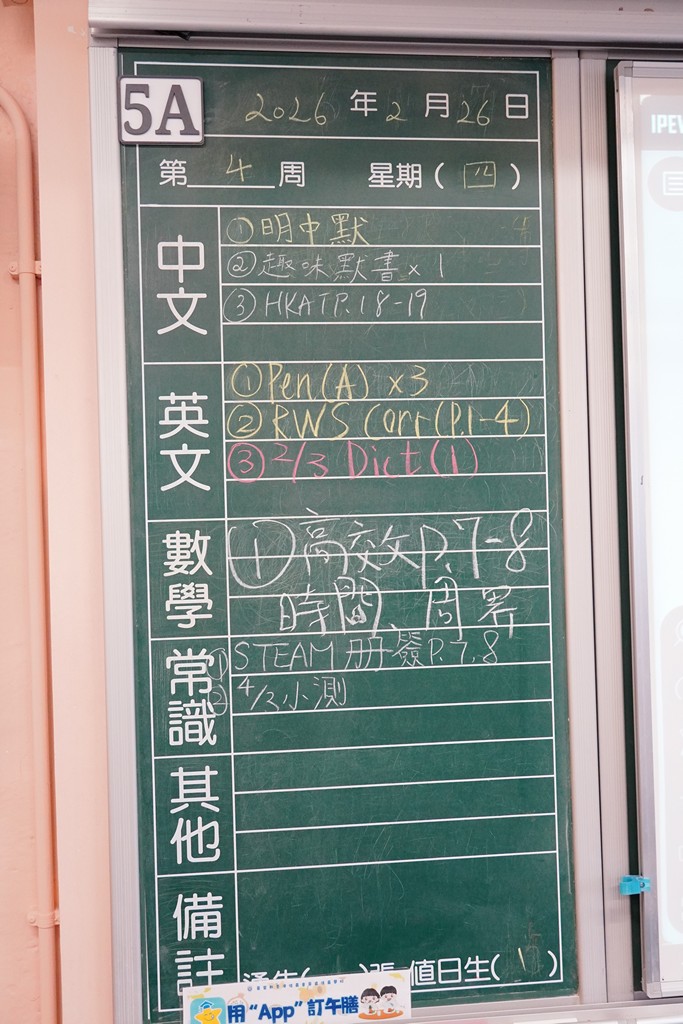 5A
2026 年 2 月 26 日
第 4 周 星期 ( 四 )
中文
① 明中默
② 趣味默書 x 1
③ HKAT P.18-19
英文
① Pen(A) x3
② RWS Corr(P.1-4)
③ 2/3 Dict(1)
數學
① 高效 P.7-8
時間、周界
常識
① STEAM 册 簽 P.7,8
② 4/3 小測
其他
備註
通告( )張 值日生( 1 )
用 “App” 訂午膳
IPEV